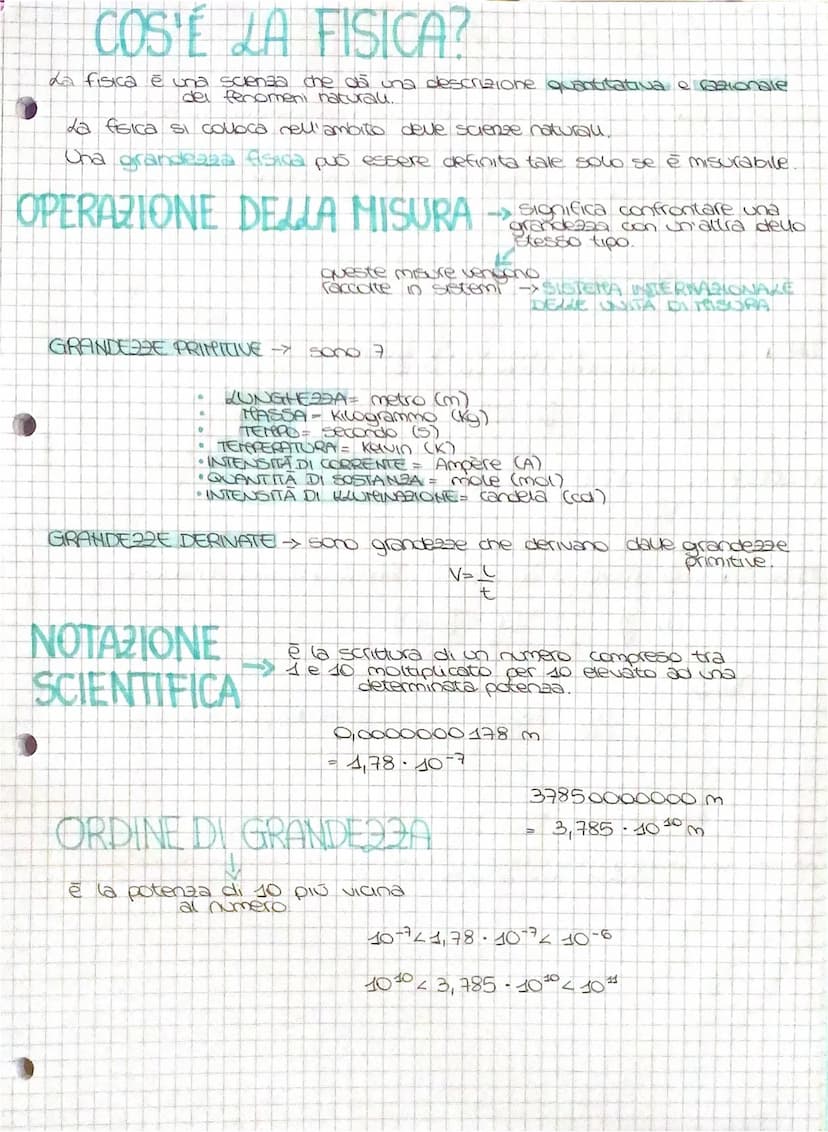 COS'É LA FISICA?
La fisica é una scienza che dà una descrizione quantitativa e razionale
dei fenomeni naturali.
La fisica si colloca nell'ambito delle scienze naturali.
Una grandezza fisica può essere definita tale solo se é misurabile.
OPERAZIONE DELLA MISURA → significa confrontare una
grandezza con un'altra dello
stesso tipo.
queste misure vengono
raccolte in sistemi → SISTEMA INTERNAZIONALE
DELLE UNITÀ DI MISURA
GRANDEZZE PRIMITIVE → sono 7
• LUNGHEZZA = metro (m)
• MASSA = Kilogrammo (Kg)
• TEMPO = secondo (s)
• TEMPERATURA = Kelvin (K)
• INTENSITÀ DI CORRENTE = Ampère (A)
• QUANTITÀ DI SOSTANZA = mole (mol)
• INTENSITÀ DI ILLUMINAZIONE = candela (cd)
GRANDEZZE DERIVATE → sono grandezze che derivano dalle grandezze
primitive.
V = L/t
NOTAZIONE
SCIENTIFICA → é la scrittura di un numero compreso tra
1 e 10 moltiplicato per 10 elevato ad una
determinata potenza.
0,0000000178 m
= 1,78 · 10⁻⁷
37850000000 m
= 3,785 · 10¹⁰ m
ORDINE DI GRANDEZZA
↓
é la potenza di 10 più vicina
al numero
10⁻⁷ < 1,78 · 10⁻⁷ < 10⁻⁶
10¹⁰ < 3,785 · 10¹⁰ < 10¹¹